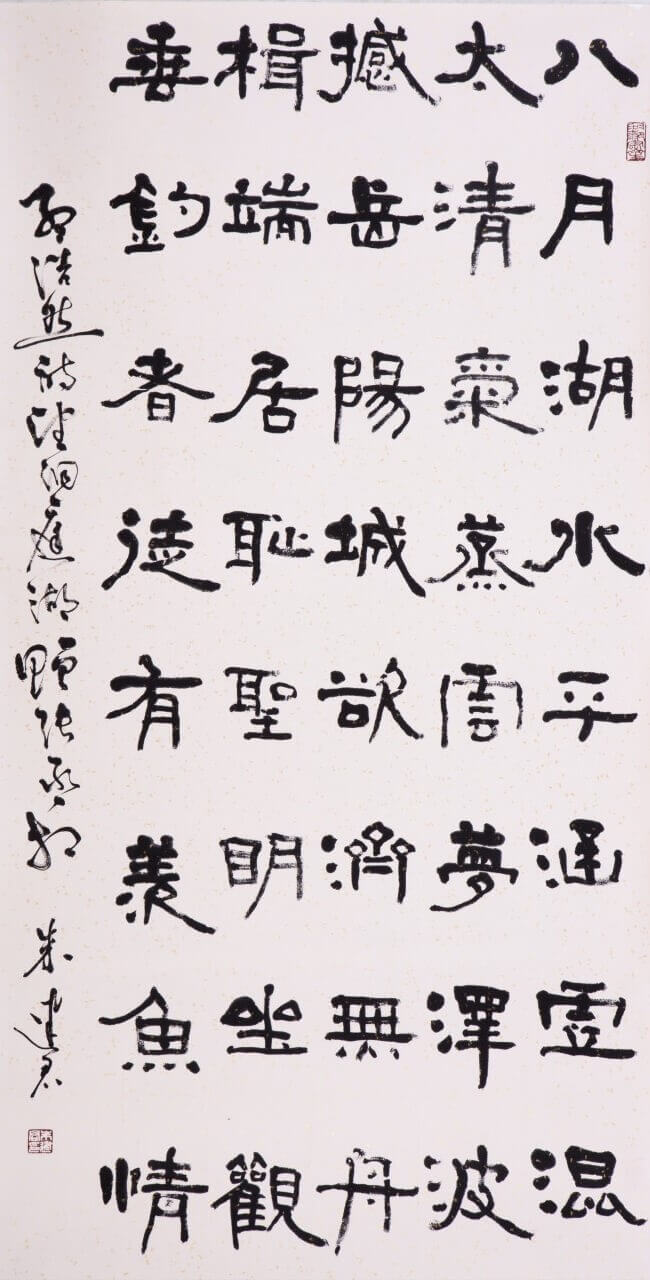 八月湖水平涵虛混
太清氣蒸雲夢澤波
撼岳陽城欲濟無舟
楫端居耻聖明坐觀
垂釣者徒有羨魚情
孟浩然詩望洞庭湖贈張丞相